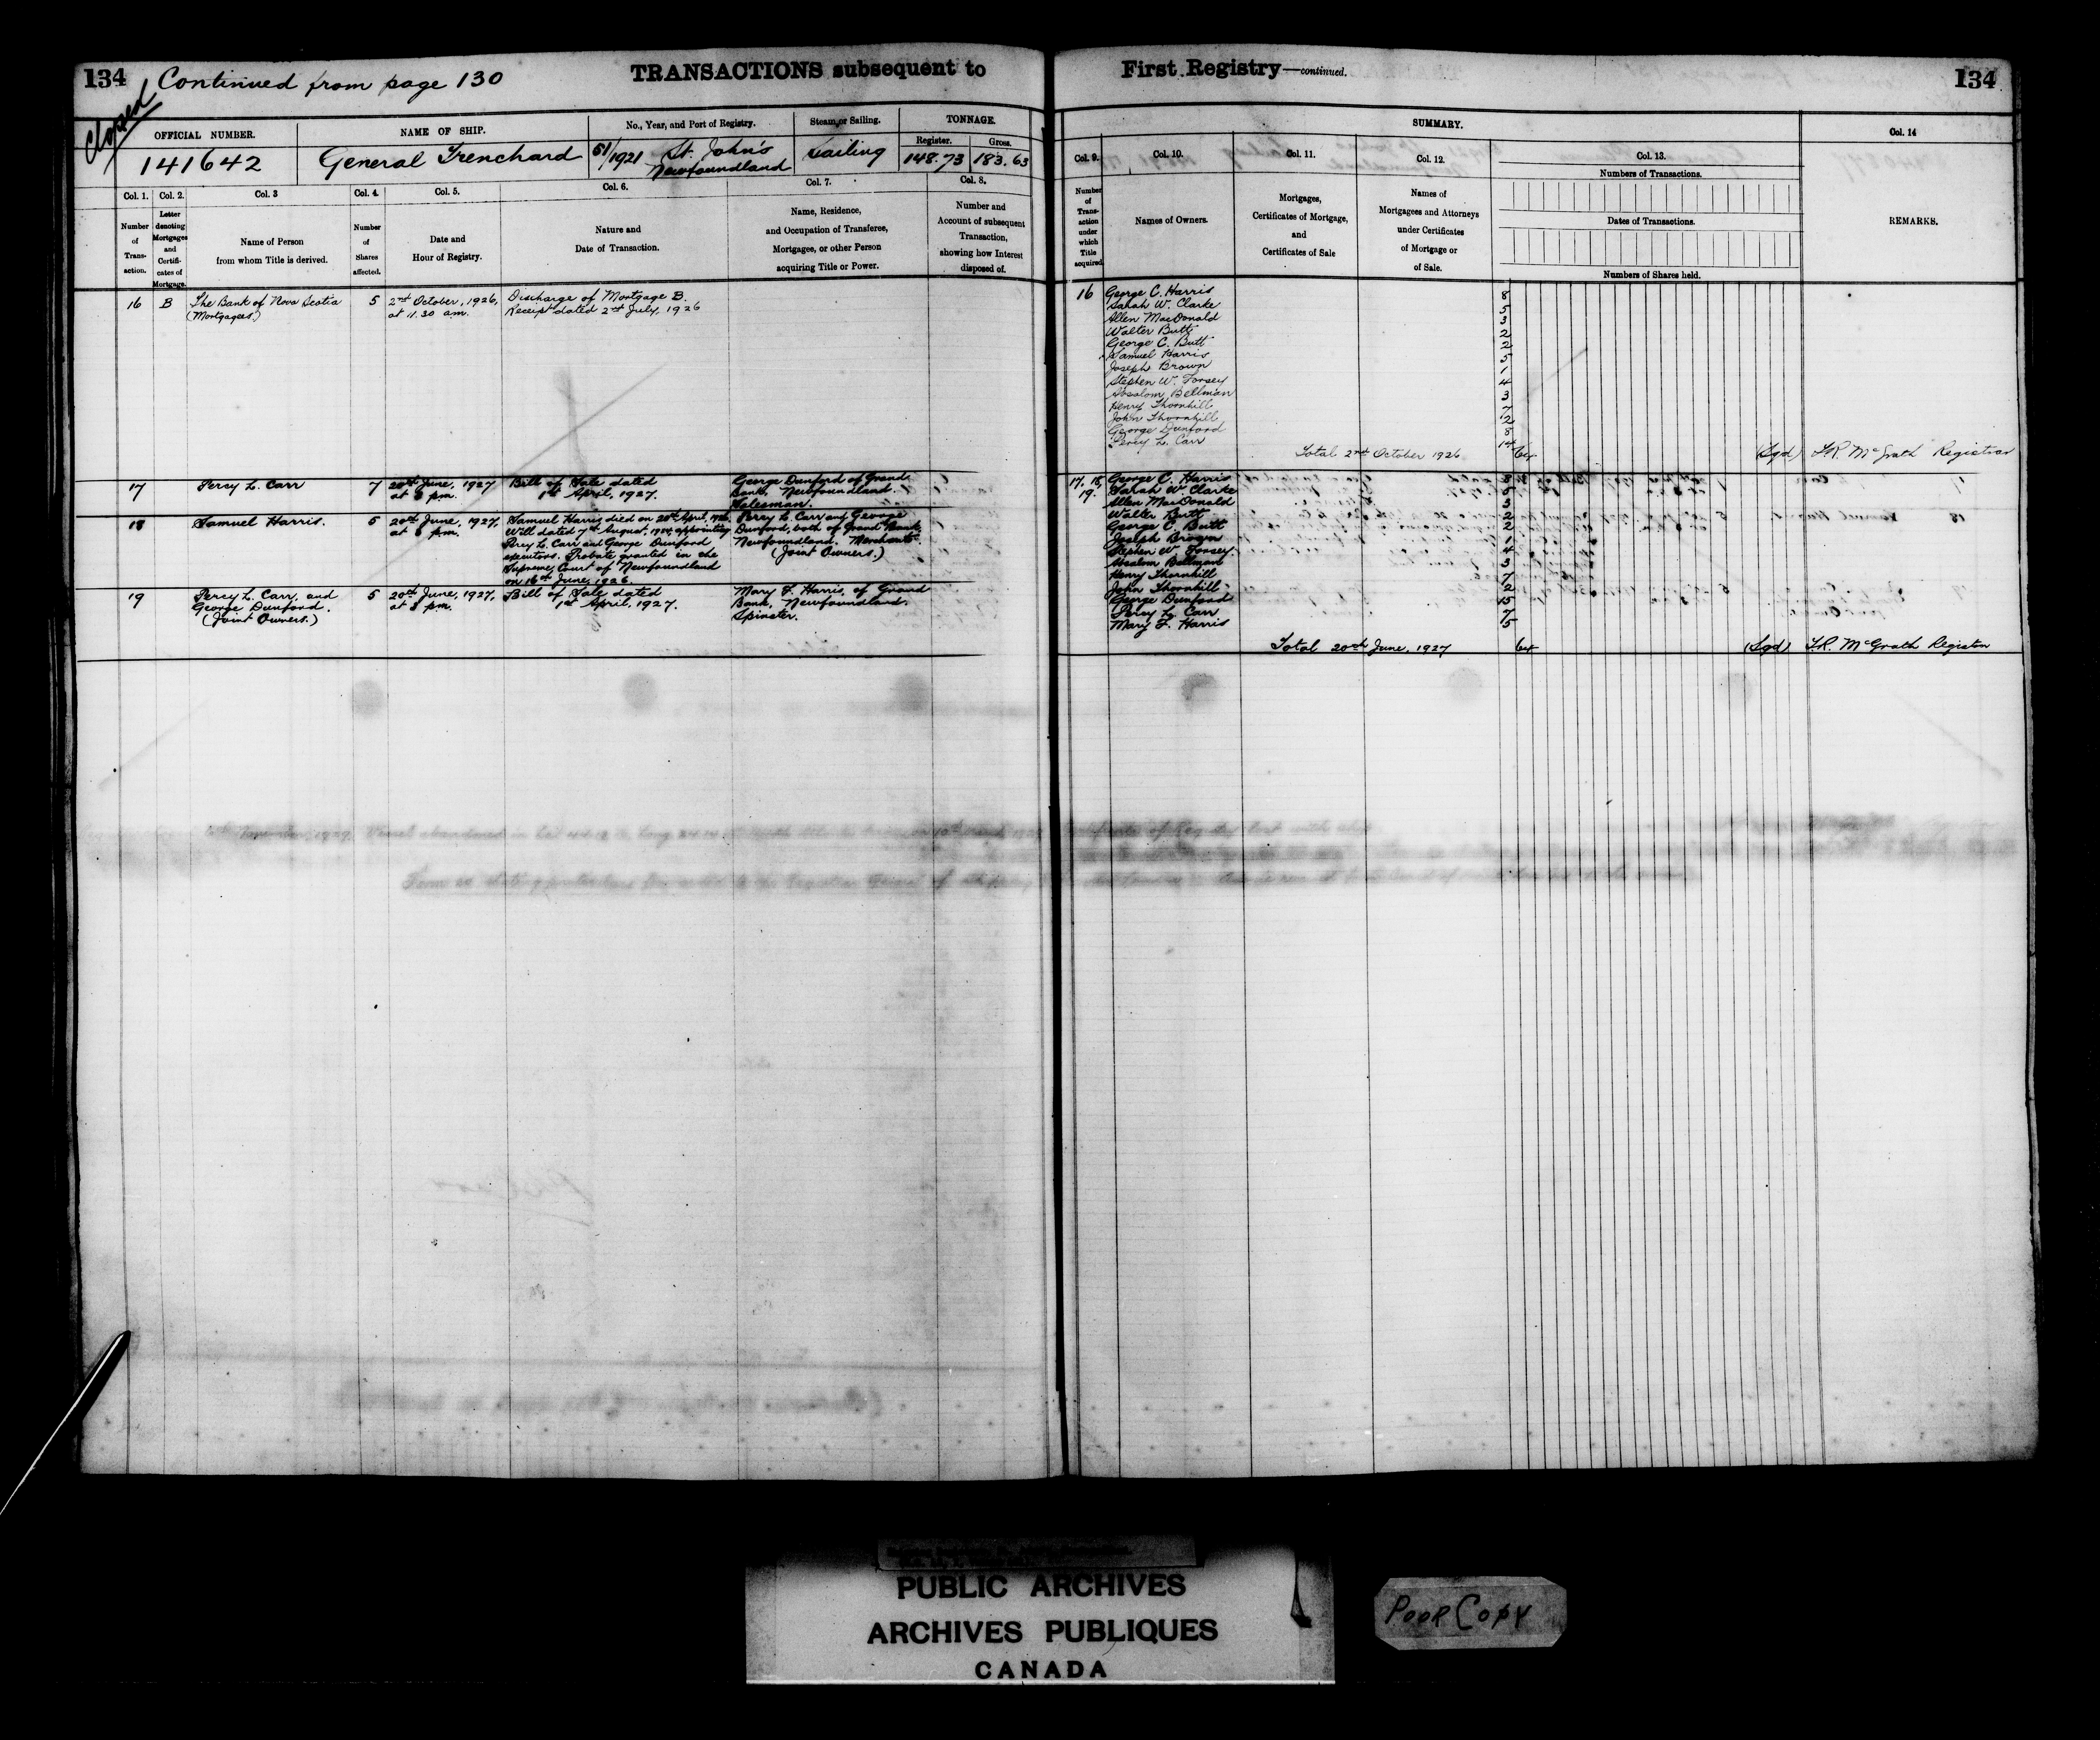 134 Continued from page 130 TRANSACTIONS subsequent to First Registry—continued. 134
Closed
OFFICIAL NUMBER. NAME OF SHIP. No., Year, and Port of Registry. Steam or Sailing. TONNAGE.
Register. Gross.
141642 General Trenchard 51/1921 St. John's Newfoundland Sailing 148.73 183.63
Col. 1. Col. 2. Col. 3 Col. 4. Col. 5. Col. 6. Col. 7. Col. 8.
Number of Transaction.
Letter denoting Mortgages and Certificates of Mortgage.
Name of Person
from whom Title is derived.
Number of Shares affected.
Date and
Hour of Registry.
Nature and
Date of Transaction.
Name, Residence,
and Occupation of Transferee,
Mortgagee, or other Person
acquiring Title or Power.
Number and
Account of subsequent
Transaction,
showing how Interest
disposed of.
16 B The Bank of Nova Scotia 5 2nd October, 1926, Discharge of Mortgage B.
(Mortgagees) at 11.30 am. Receipt dated 2nd July, 1926
17 Percy L. Carr 7 20th June, 1927 Bill of Sale dated George Dunford of Grand
at 3 pm. 1st April, 1927. Bank, Newfoundland.
Salesman.
18 Samuel Harris. 5 20th June, 1927, Samuel Harris died on April, 1926. Percy L. Carr and George
at 3 pm. Will dated 7th August, appointing Dunford, both of Grand Bank,
Percy L. Carr and George Dunford Newfoundland. Merchants
executors. Probate granted in the (Joint Owners.)
Supreme Court of Newfoundland
on 16th June, 1926.
19 Percy L. Carr, and 5 20th June, 1927, Bill of Sale dated Mary F. Harris, of Grand
George Dunford. at 3 pm. 1st April, 1927. Bank, Newfoundland.
(Joint Owners.) Spinster.
SUMMARY.
Col. 9. Col. 10. Col. 11. Col. 12. Col. 13. Col. 14
Number of Transaction under which Title acquired
Names of Owners.
Mortgages,
Certificates of Mortgage,
and
Certificates of Sale
Names of
Mortgagees and Attorneys
under Certificates
of Mortgage or
of Sale.
Numbers of Transactions.
Dates of Transactions.
Numbers of Shares held.
REMARKS.
16 George C. Harris 8
Sarah W. Clarke 5
Allen MacDonald 3
Walter Butt 2
George C. Butt 2
Samuel Harris 5
Joseph Brown 1
Stephen W. Forsey 4
Absalom Bellman 3
Henry Thornhill 7
John Thornhill 2
George Dunford 8
Percy L. Carr 14
Total 2nd October 1926 64 (Sgd) F.R. McGrath Registrar
17. 18, George C. Harris 8
19. Sarah W. Clarke 5
Allen MacDonald 3
Walter Butt 2
George C. Butt 2
Joseph Brown 1
Stephen W. Forsey 4
Absalom Bellman 3
Henry Thornhill 7
John Thornhill 2
George Dunford 15
Percy L. Carr 7
Mary F. Harris 5
Total 20th June, 1927 64 (Sgd) F.R. McGrath Registrar
PUBLIC ARCHIVES
ARCHIVES PUBLIQUES
CANADA
POOR COPY